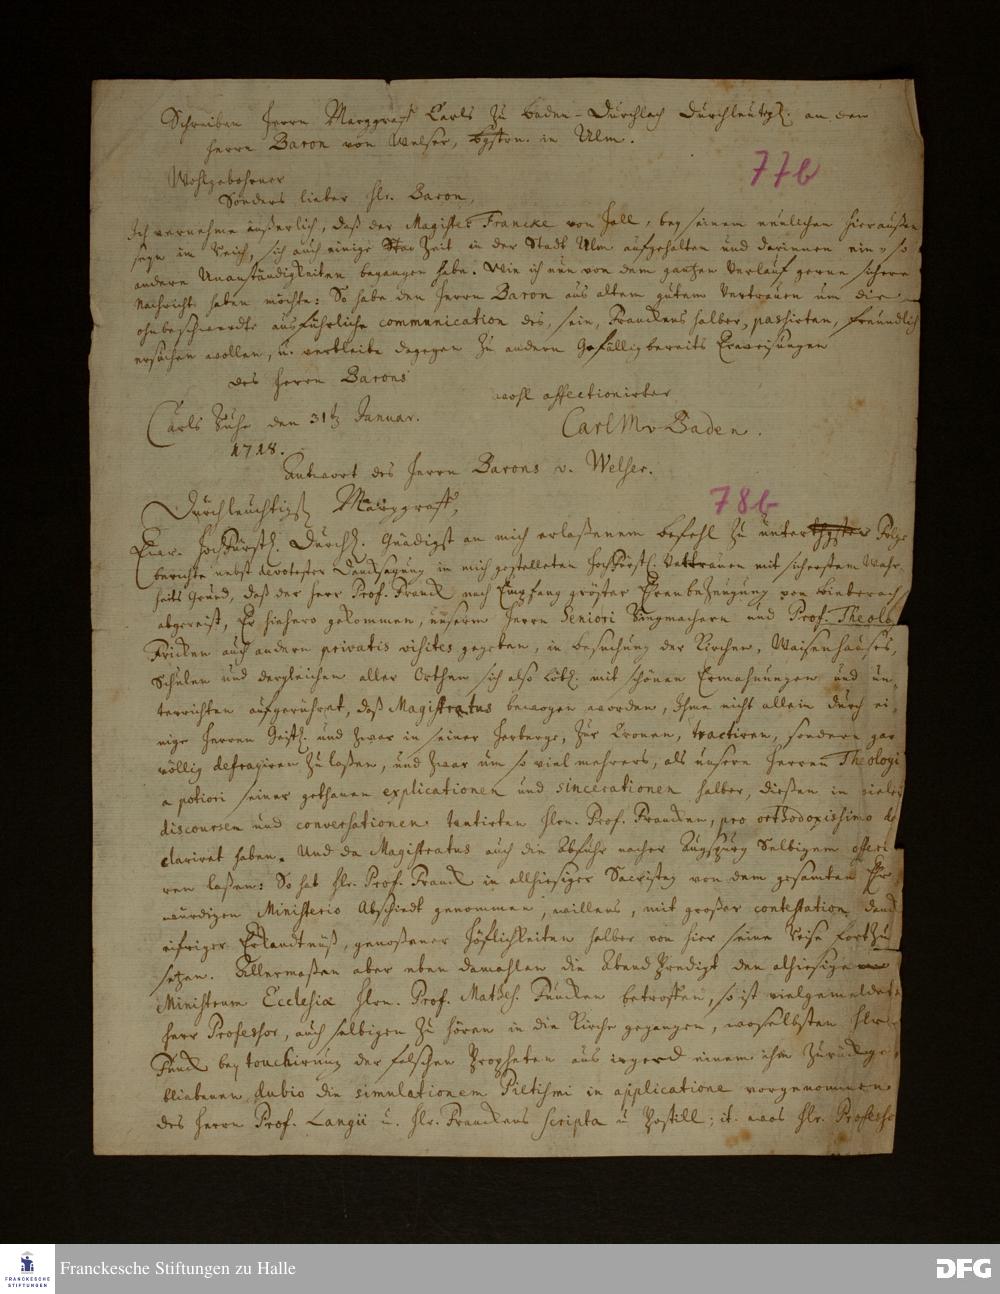 Schreiben Herrn Marggraff Carls zu Baden-Durchlach Durchleucht. an den
Herrn Baron von Welser, in Ulm.
77b
Wohlgebohrner
Sonders lieber Hr. Baron,
Ich vernehme äußerlich, daß der Magister Francke von Hall, bey seinem neulichen hieraußen
seyn im Reich, sich auch einige Zeit in der Stadt Ulm aufgehalten und darinnen ein, so
andere Unanständigkeiten begangen habe. Wie ich nun von dem gantzen Verlauf gerne sichere
Nachricht haben möchte: So habe den Herrn Baron aus altem gutem Vertrauen um die
ohnbeschwerdte ausführliche communication des, sein, Franckens halber, passirten, freundlich
ersuchen wollen, u. verbleibe dagegen zu andern Gefällig bereits Erweisungen
des Herrn Barons
wohl affectionirter
Carls Ruhe den 31t Januar.
Carl M v Baden.
1718.
Antwort des Herrn Barons v. Welser.
78b
Durchleuchtigst Marggraff,
Euer. Hochfürstl. Durchl. Gnädigst an mich erlaßenem befehl zu Folge
berichte nebst devotester Dancksagung in mich gestelleten Hochfürstl. Vertrauen mit sicherstem Wahr-
heits Grund, daß der Herr Prof. Franck nach Empfang gröster Ehrenbezeugung von Bieberach
abgereist, Er hiehero gekommen, unserm Herrn Seniori und Prof. Theolo
Fricken auch andern privatis visites gegeben, in besuchung der Kirchen, Waisenhauses,
Schulen und dergleichen aller Orthen sich also löbl. mit schönen Ermahnungen und un-
terrichten aufgeführet, daß Magistratus bewogen worden, Ihme nicht allein durch ei-
nige Herren Geistl. und zwar in seiner Herberge, zur Cronen, tractiren, sondern gar
völlig defrayiren zu laßen, und zwar um so viel mehrers, als unsere Herren Theologi
a potiori seiner gethanen explicationen und sincerationen halber, dießen in vielen
discoursen und conversationen tentirten Hrn. Prof. Francken, pro orthodoxissimo de
clariret haben. Und da Magistratus auch die Abfuhr nacher Augspurg Selbigem offeri
ren laßen: So hat Hr. Prof. Franck in allhiesiger Sacristey von dem gesamten Ehr
würdigen Ministerio Abschiedt genommen, willens, mit großer contestation danck
eifriger Erkandtnüß, genoßener Höflichkeiten halber von hier seine Reise fortzu
setzen. Allermaßen aber eben damahlen die Abend Predigt den alhiesigen
Ministrum Ecclesiæ Hrn. Prof. Mathes. Funcken betroffen, so ist vielgemeldete
Herr Professor, auch selbigen zu hören in die Kirche gegangen, woselbsten Hr
Funck bey touchirung der falschen Propheten aus irgend einem ihm zurückge
bliebenen dubio die simulationem Pietismi in applicatione vorgenommen
des Herrn Prof. Langii u. Hr. Franckens scripta u Postill; it. was Hr. Professo
Franckesche Stiftungen zu Halle
FRANCKESCHE
STIFTUNGEN
DFG